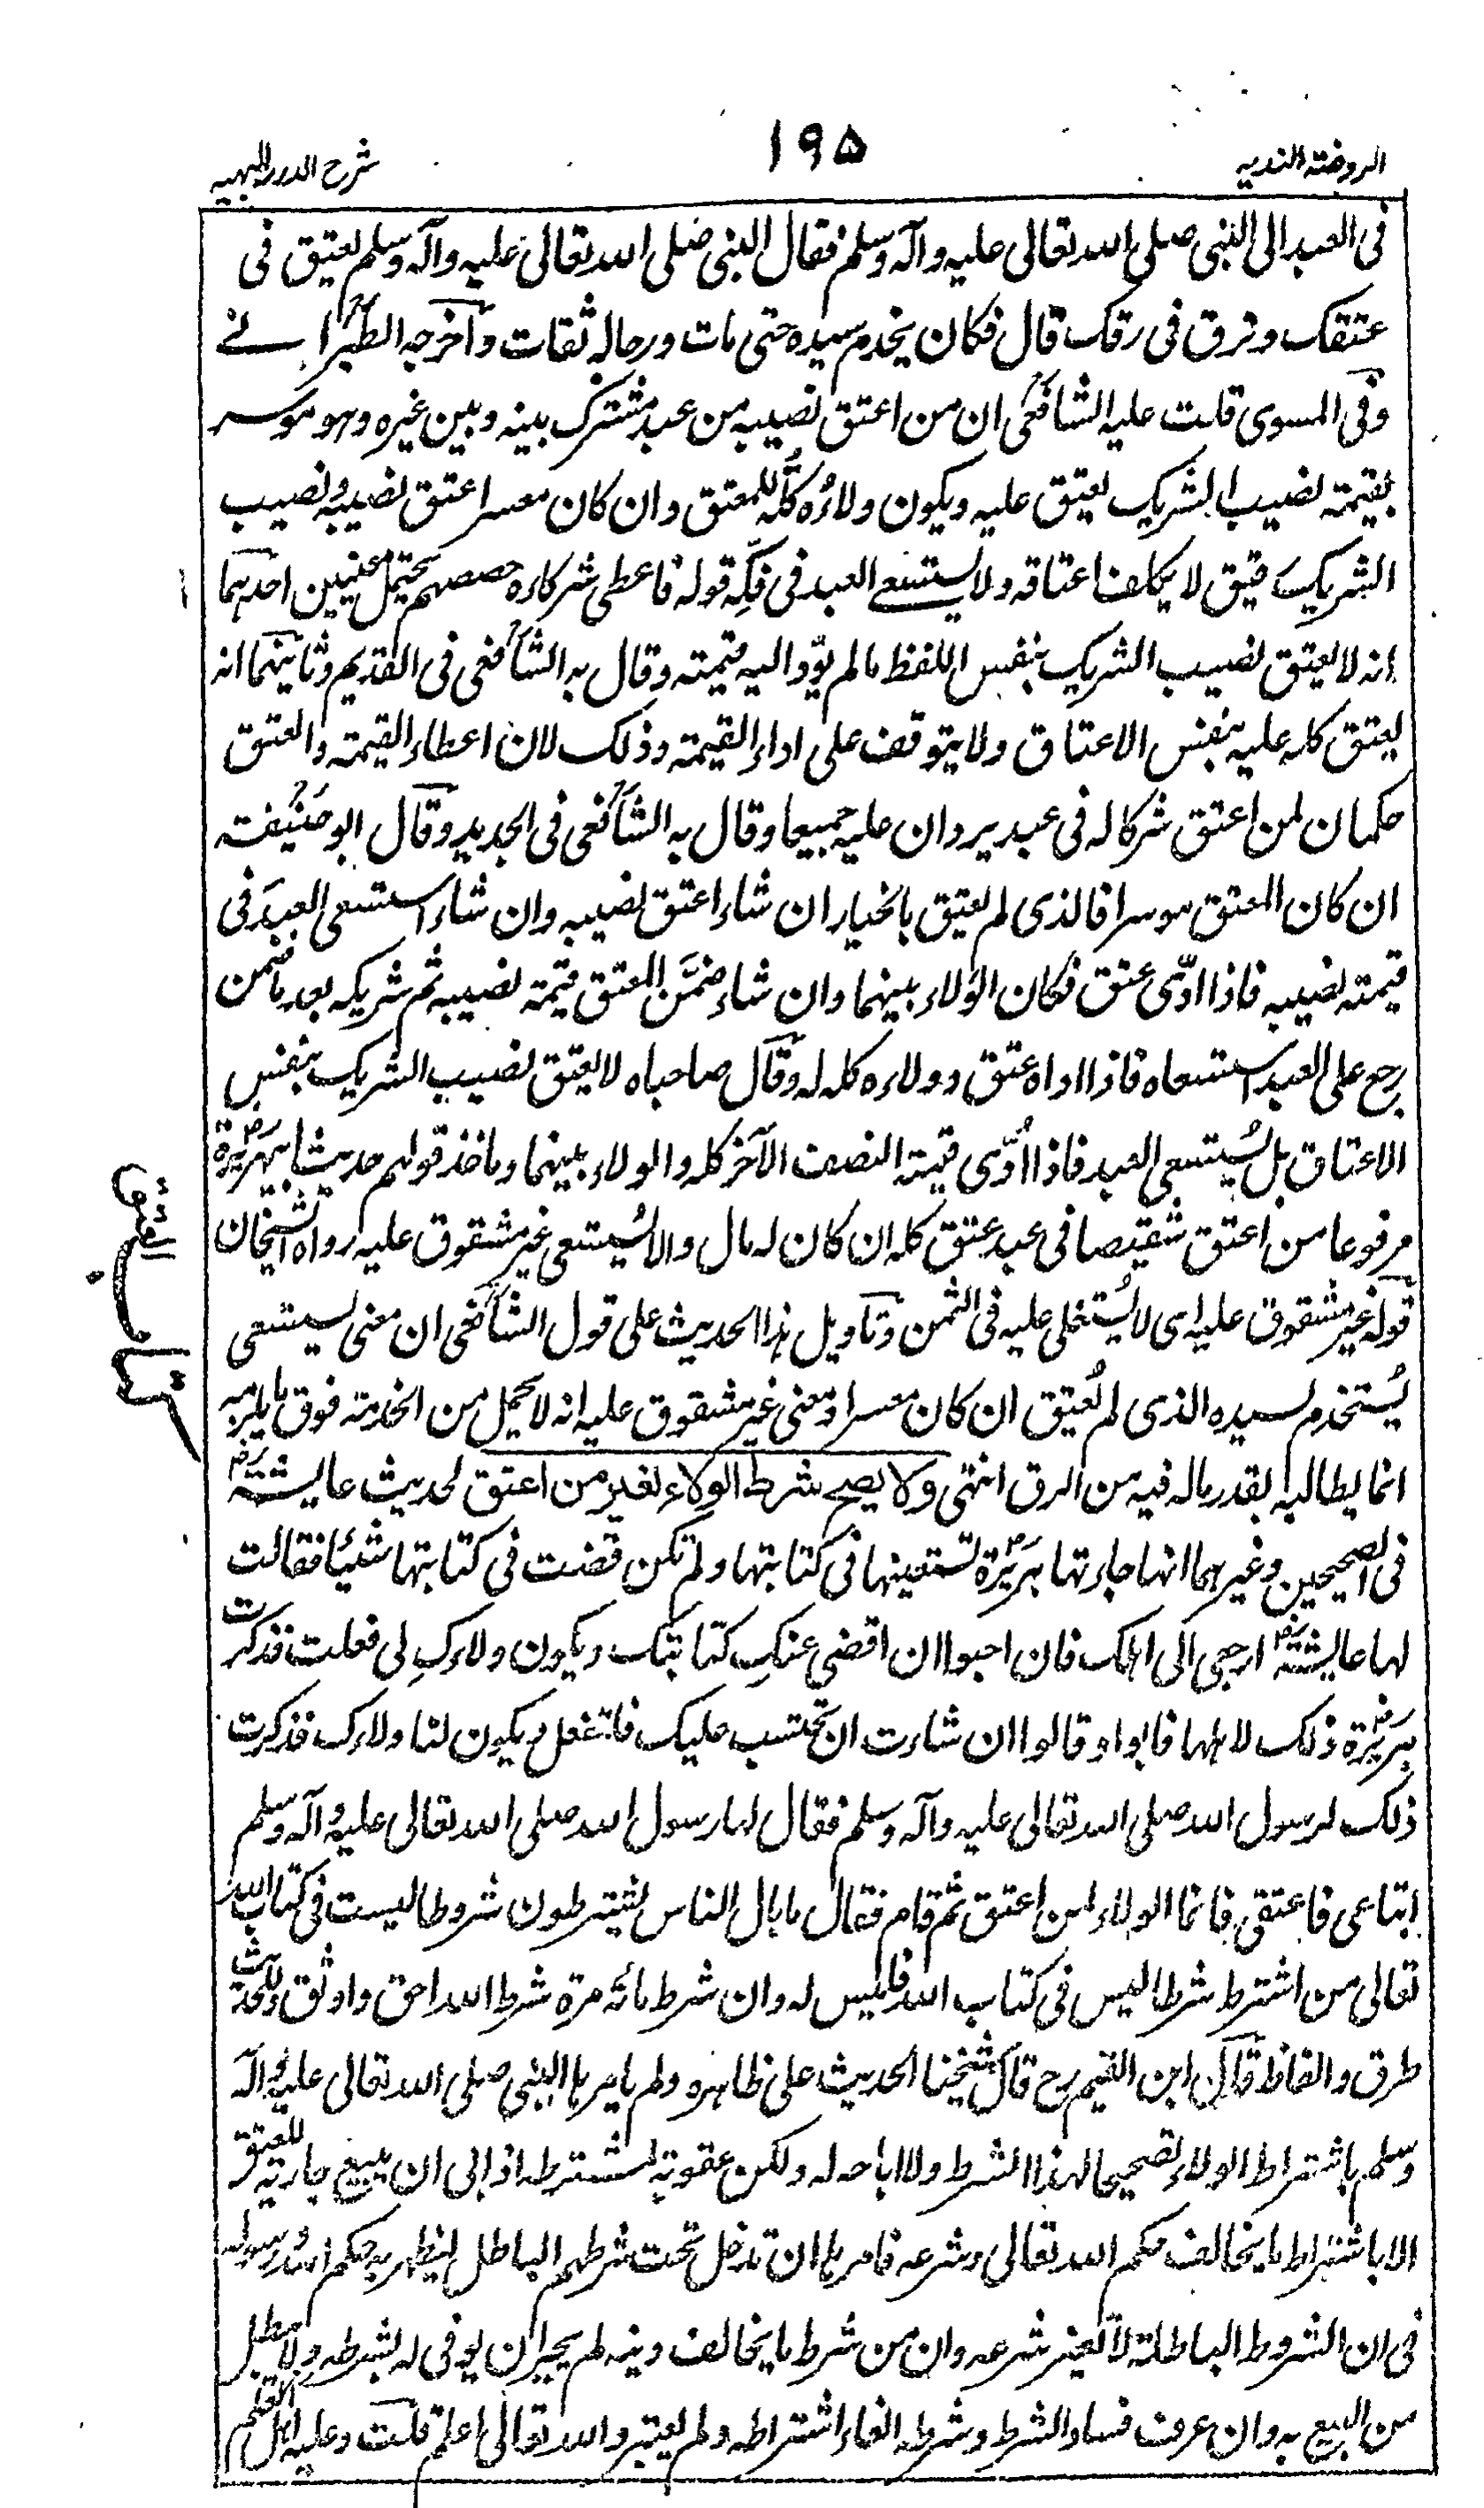 الروضة الندية
١٩٥
شرح الدرر البهية
فى العبد الى النبى صلى الله تعالى عليه وآله وسلم فقال النبى صلى الله تعالى عليه وآله وسلم يعتق فى
عتقك ويرق فى رقك قال فكان يخدم سيده حتى مات ورجاله ثقات وأخرجه الطبرانے
وفى المسوى قلت عليه الشافعى ان من اعتق نصيبه من عبد مشترك بينه وبين غيره وهو موسر
بقيمة نصيب الشريك يعتق عليه ويكون ولاؤه كله للمعتق وان كان معسرا عتق نصيبه ونصيب
الشريك رقيق لا يكلف اعتاقه ولا يستسعے العبد فى فكه قوله فاعطى شركاءه حصصهم يحتمل معنيين احدهما
انه لا يعتق نصيب الشريك بنفس اللفظ ما لم يؤد اليه قيمته وقال به الشافعى فى القديم وثانيهما انه
يعتق كله عليه بنفس الاعتاق ولا يتوقف على اداء القيمة وذلك لان اعطاء القيمة والعتق
حكمان لمن اعتق شركا له فى عبد يردان عليه جميعا وقال به الشافعى فى الجديد وقال ابو حنيفة
ان كان المعتق موسرا فالذى لم يعتق بالخيار ان شاء اعتق نصيبه وان شاء استسعى العبد فى
قيمة نصيبه فاذا ادّى عتق فكان الولاء بينهما وان شاء ضمّن المعتق قيمة نصيبه ثم شريكه بعد ما ضمن
رجع على العبد استسعاه فاذا اداه عتق وولاءه كله له وقال صاحباه لا يعتق نصيب الشريك بنفس
الاعتاق بل يُستسعى العبد فاذا ادّى قيمة النصف الآخر كله والولاء بينهما وماخذ قولهم حديث ابى هريرة رض
مرفوعا من اعتق شقيصا فى عبد عتق كله ان كان له مال والا يُستسعى غير مشقوق عليه رواه الشيخان
قوله غير مشقوق عليه اى لا يُستغلى عليه فى الثمن وتاويل هذا الحديث على قول الشافعى ان معنى يستسعى
يُستخدم لسيده الذى لم يُعتق ان كان معسرا ومعنى غير مشقوق عليه انه لا يحمل من الخدمة فوق ما يلزمه
انما يطالبه بقدر ماله فيه من الرق انتهى ولا يصح شرط الولاء لغير من اعتق لحديث عايشة رض
فى الصحيحين وغيرهما انها جاءتها بريرة رض تستعينها فى كتابتها ولم تكن قضت فى كتابتها شيئا فقالت
لها عايشة رض ارجعى الى اهلك فان احبوا ان اقضى عنكِ كتابتك ويكون ولاءكِ لى فعلت فذكرت
بريرة رض ذلك لاهلها فابوا وقالوا ان شاءت ان تحتسب عليك فلتفعل ويكون لنا ولاءك فذكرت
ذلك لرسول الله صلى الله تعالى عليه وآله وسلم فقال لها رسول الله صلى الله تعالى عليه وآله وسلم
ابتاعى فاعتقى فانما الولاء لمن اعتق ثم قام فقال ما بال الناس يشترطون شروطا ليست فى كتاب الله
تعالى من اشترط شرطا ليس فى كتاب الله فليس له وان شرط مائة مرة شرط الله احق واوثق وللحديث
طرق والفاظ قال ابن القيم رح قال شيخنا الحديث على ظاهره ولم يامرها النبى صلى الله تعالى عليه وآله
وسلم باشتراط الولاء تصحيحا لهذا الشرط ولا اباحه له ولكن عقوبة لمشترطه اذ ابى ان يبيع جارية للعتق
الا باشتراط ما يخالف حكم الله تعالى وشرعه فامرها ان تدخل تحت شرطهم الباطل ليظهر به حكم الله ورسوله
فى ان الشروط الباطلة لا تغير شرعه وان من شرط ما يخالف دينه لم يجز ان يوفى له بشرطه ولا يبطل
من البيع به وان عرف فساد الشرط وشرطه الغاء اشتراطه ولم يعتبر والله تعالى اعلم قلت وعليه اهل العلم